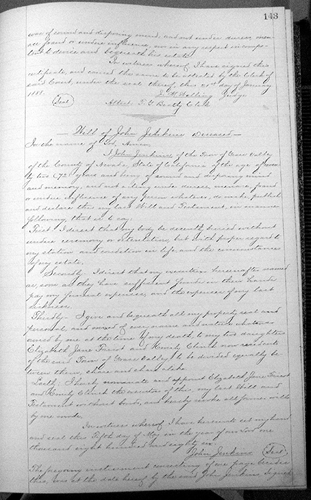 143
was of sound and disposing mind, and not under duress menace
fraud or undue influence, nor in any respect incompetent to devise and bequeath his estate.
In witness whereof, I have signed this
certificate, and caused the same to be attested by the Clerk of
said Court, under the seal thereof, this day of January
188
Judge
Attest Clerk
Seal
Will of John Jenkins Deceased
In the name of God. Amen.
I John Jenkins of the Town of Grass Valley
of the County of Nevada State of California of the age of seventy two (72) years and being of sound and disposing mind
and memory, and not acting under duress, menace, fraud
or undue influence of any person whatever, do make publish
and declare this my last Will and Testament, in manner
following, that is to say:
First. I direct that my body be decently buried without
undue ceremony or ostentation, but with proper regard to
my station and condition in life and the circumstances
of my estate.
Secondly. I direct that my executors hereinafter named
as soon as they have sufficient funds in their hands
pay my funeral expenses, and the expenses of my last
sickness.
Thirdly. I give and bequeath all my property real and
personal and mixed of any name and nature whatever
owned by me at the time of my death, to my two daughters
Elizabeth Jane and Emily now residents
of the said Town of Grass Valley, to be divided equally between them, share and share alike.
Lastly. I hereby nominate and appoint Elizabeth Jane
and Emily the executors of this, my last Will and
Testament without bonds, and hereby revoke all former wills
by me made.
In witness whereof I have hereunto set my hand
and seal this Fifth day of May in the year of our Lord one
thousand eight hundred and eighty six.
John Jenkins Seal
The foregoing instrument consisting of one page besides
this, was at the date hereof by the said John Jenkins signed